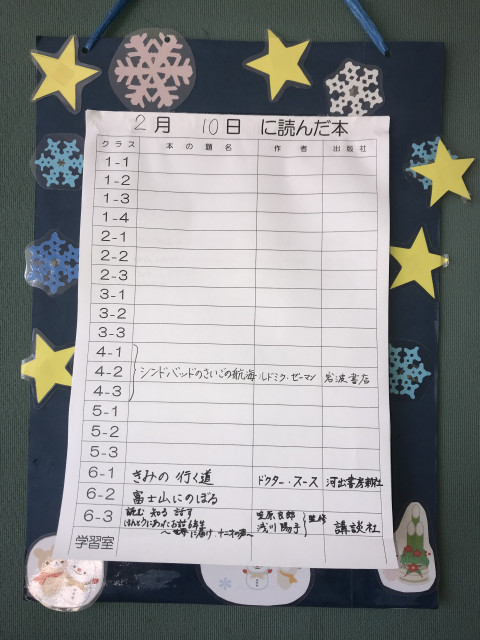 2月 10日 に読んだ本
クラス 本の題名 作者 出版社
1-1
1-2
1-3
1-4
2-1
2-2
2-3
3-1
3-2
3-3
4-1
4-2 シンドバッドのさいごの航海 ルドミラ・ゼーマン 岩波書店
4-3
5-1
5-2
5-3
6-1 きみの行く道 ドクター・スース 河出書房新社
6-2 富士山にのぼる
6-3 読む 知る 話す
ほんとうにあったお話 6年生 笠原良郎 浅川陽子 監修 講談社
〜世界に届け 十二才の声〜
学習室